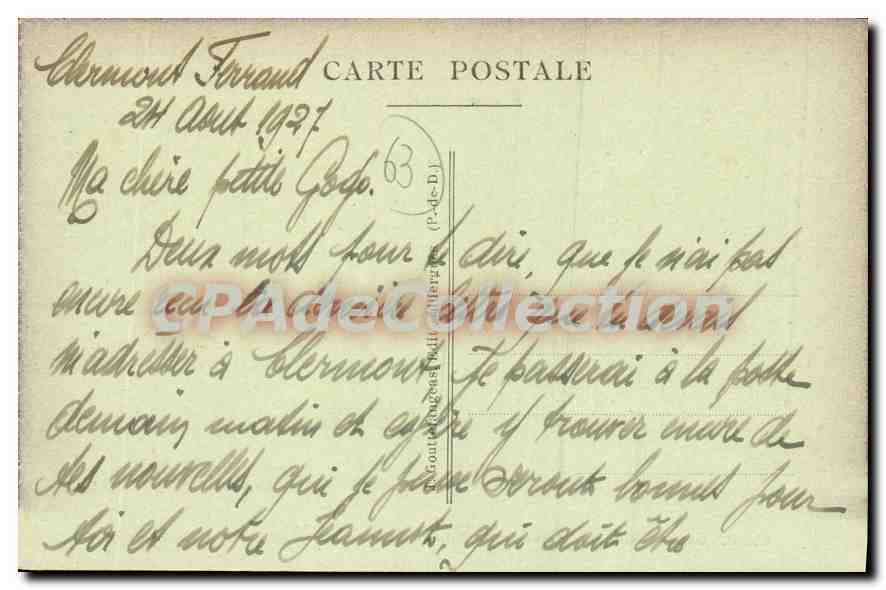 Clermont Ferrand
CARTE POSTALE
24 Aout 1927
63
Ma chère petite Gogo.
Deux mots pour te dire, que je n'ai pas
encore la dernière lettre que tu
m'adresser à Clermont, Je passerai à la poste
demain matin et espère y trouver encore de
tes nouvelles, qui je pense seront bonnes pour
toi et notre Jeannot, qui doit être
CPAdeCollection
(P.-de-D.)